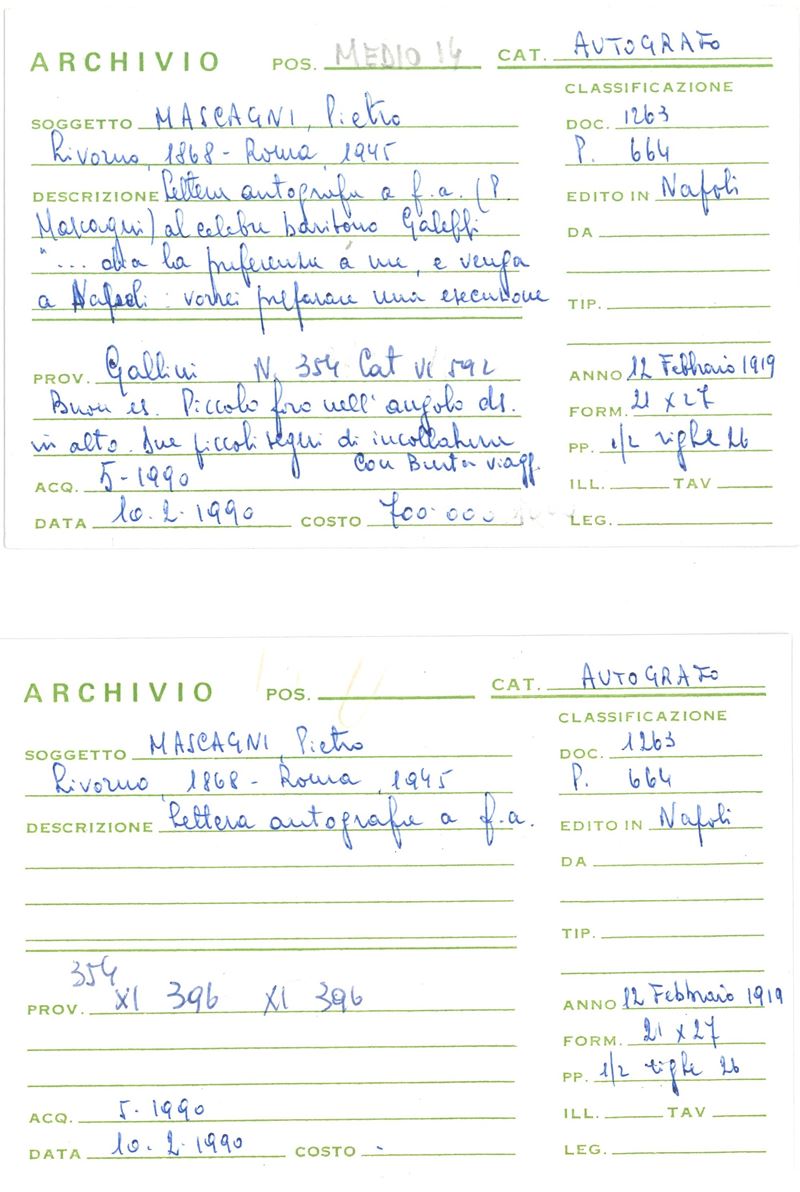 ARCHIVIO POS. MEDIO 14 CAT. AUTOGRAFO
CLASSIFICAZIONE
SOGGETTO MASCAGNI, Pietro DOC. 1263
Livorno, 1868 - Roma, 1945 P. 664
DESCRIZIONE Lettera autografa a f.a. (P. EDITO IN Napoli
Mascagni) al celebre baritono Galeffi DA
"... dia la preferenza a me, e venga
a Napoli: vorrei preparare una esecuzione TIP.
PROV. Gallini N. 354 Cat VI 592 ANNO 12 Febbraio 1919
Buon es. Piccolo foro nell'angolo ds. FORM. 21 x 27
in alto. Due piccoli segni di incollatura PP. 1/2 righe 26
con Busta viagg.
ACQ. 5-1990 ILL. TAV
DATA 10.2.1990 COSTO 700.000 LEG.
ARCHIVIO POS. CAT. AUTOGRAFO
CLASSIFICAZIONE
SOGGETTO MASCAGNI, Pietro DOC. 1263
Livorno, 1868 - Roma, 1945 P. 664
DESCRIZIONE Lettera autografa a f.a. EDITO IN Napoli
DA
TIP.
354
PROV. XI 396 XI 396 ANNO 12 Febbraio 1919
FORM. 21 x 27
PP. 1/2 righe 26
ACQ. 5-1990 ILL. TAV
DATA 10.2.1990 COSTO - LEG.